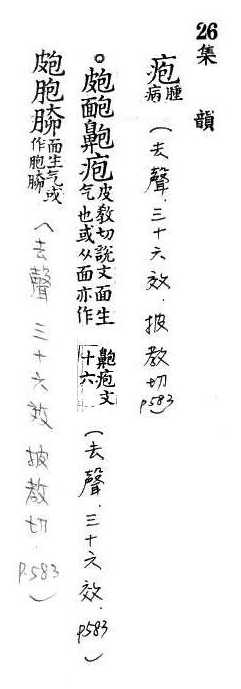 26集韻
疱腫病(去聲.三十六效.披教切 p583)
。皰靤鼿疱皮教切說文面生气也或从面亦作鼿疱文十六(去聲.三十六效.p583)
皰胞面生气或作胞(去聲三十六效披教切.p.583)